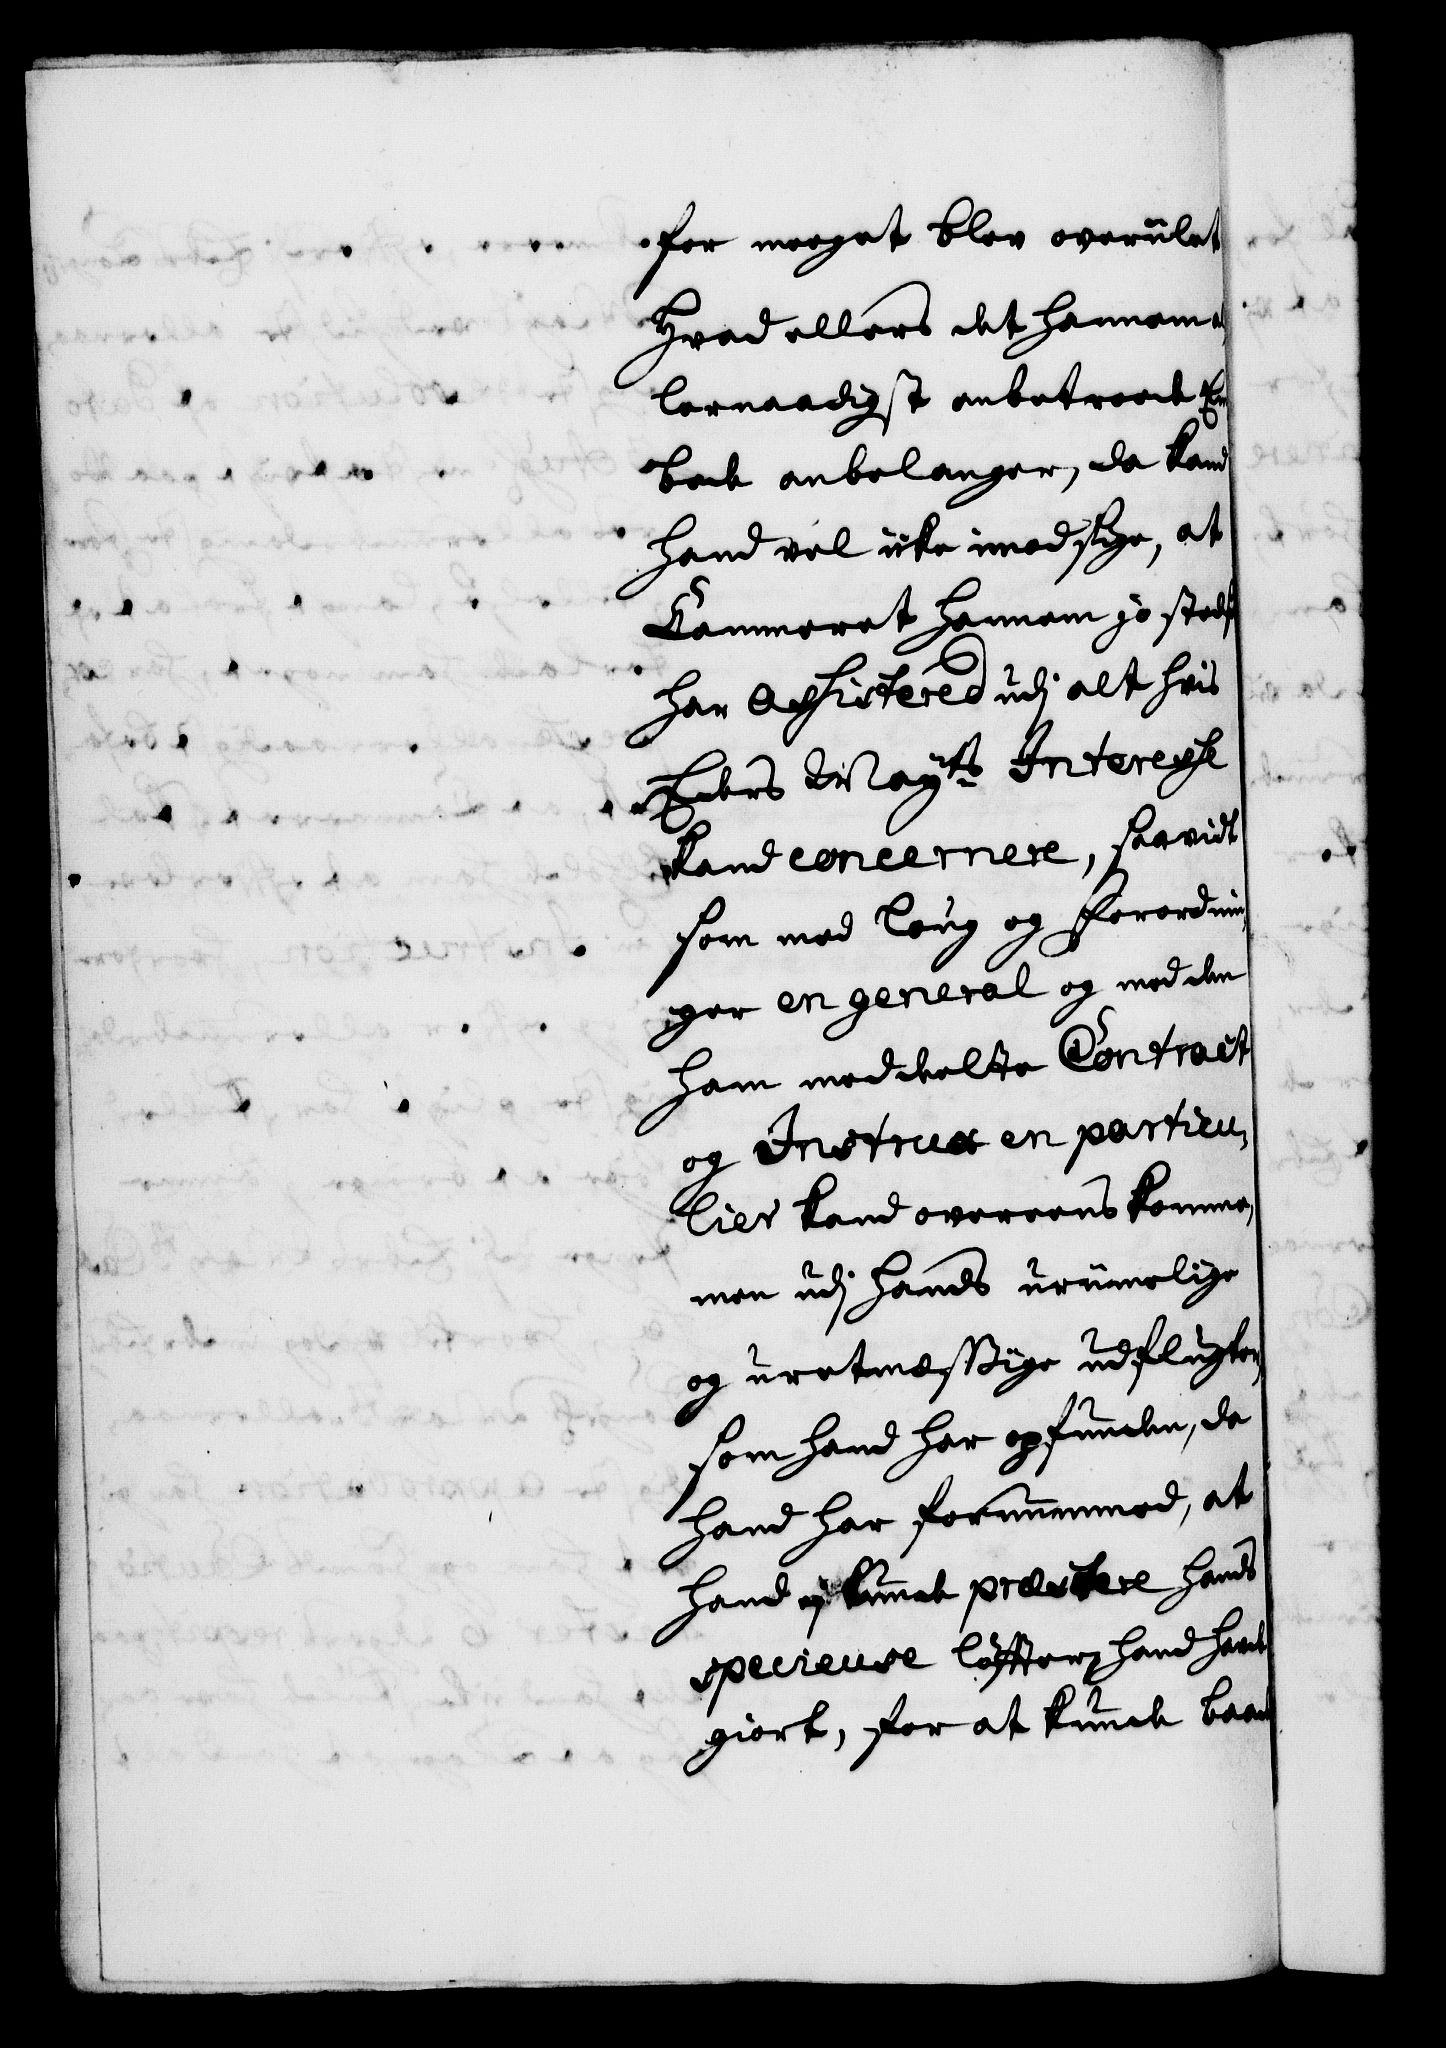 for meeget blev overiilet
Hvad ellers det hannem al
lernaadigst anbetroede Em
bede anbelanger, da kand
hand vel icke imodsige, at
Cammeret hannem jo stedse
har assistered udj alt hvis
Eders Mayts Interesse
kand concernere, saavidt
som med loug og forordnin,
ger en general og med den
ham meddeelte Contract
og Instrux en particu,
lier kand overeens komme,
men udj hands urümelige
og uretmessige udflugter,
som hand har opfunden, da
hand har fornummed, at
hand ej kunde præstere hands
specieuse löffter, hand hafde
giort, for at kunde